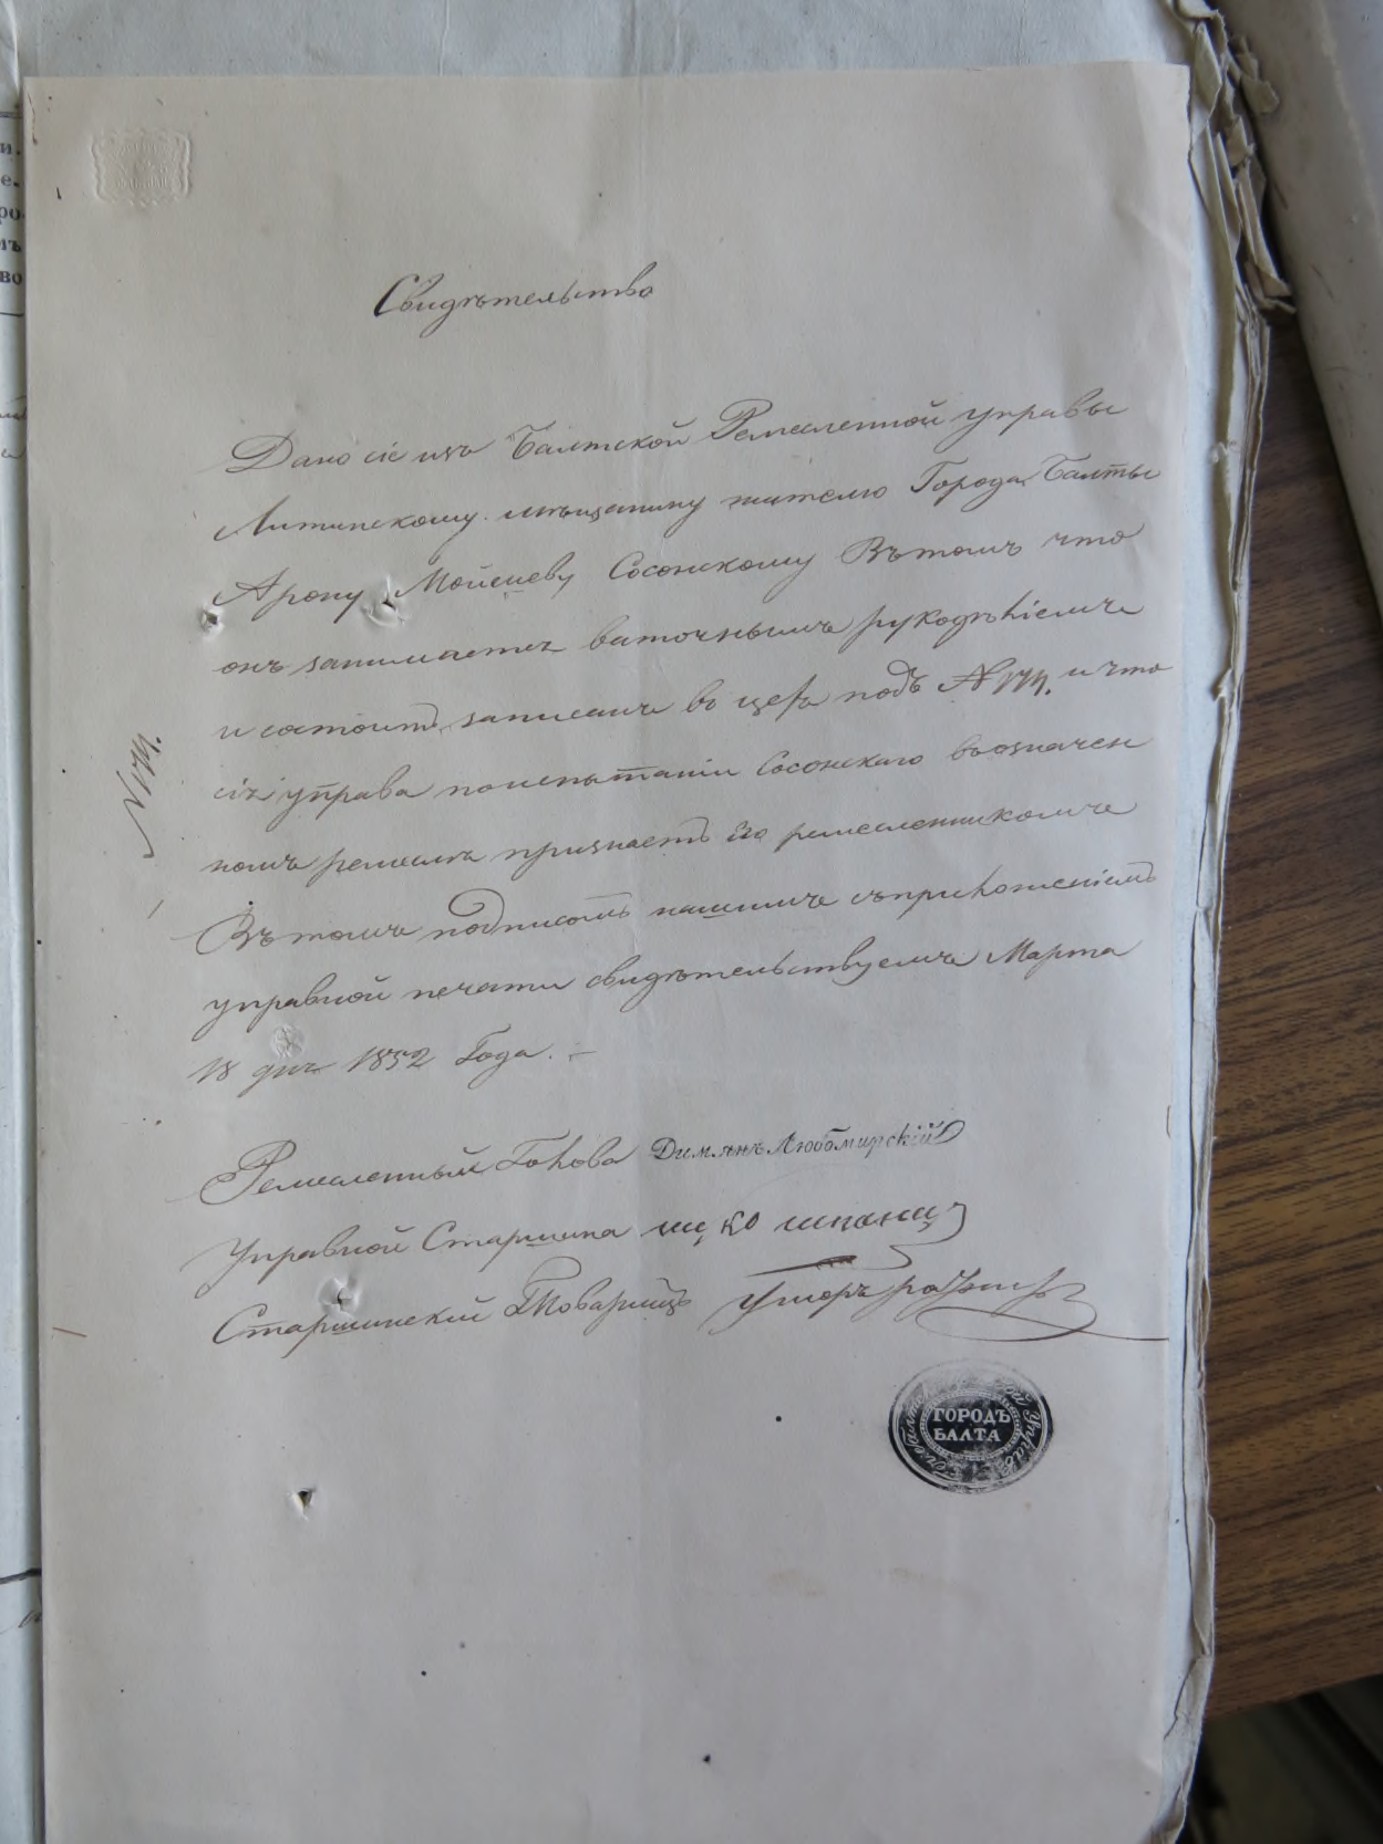 Свидѣтельство
Дано сіе изъ Балтской Ремесленной управы
Литинскому мѣщанину жителю Города Балты
Арону Мойшеву Сосонскому Въ томъ что
онъ занимается ваточнымъ рукодѣліемъ
и состоитъ записанъ въ цехъ подъ № и что
сія управа по испытаніи Сосонскаго въ означен
номъ ремеслѣ признаетъ Его ремесленникомъ
Въ томъ подписомъ нашимъ съ приложеніемъ
управной печати свидѣтельствуемъ Марта
18 дня 1852 Года.
Ремесленный Голова Димянъ Любомирскій
Управной Старшина
Старшинскій Товарищъ
ГОРОДЪ
БАЛТА